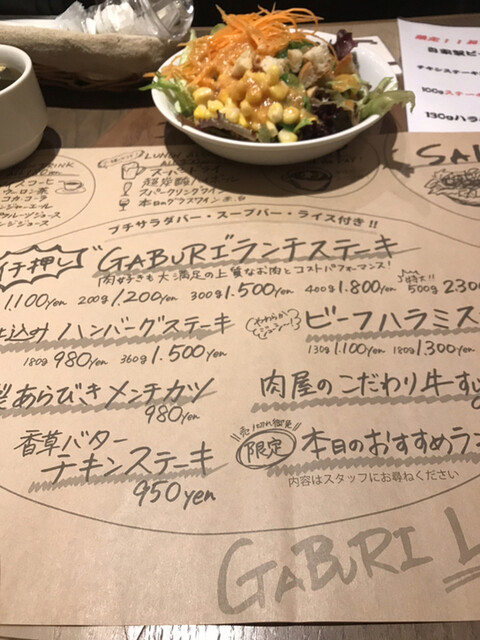 限定!!
自家製ビー
チキンステーキ
100gステーキ
130gハラ
DRINK
コーヒー
ウーロン茶
コカ・コーラ
ジンジャーエール
LUN
スーパードライ
スパークリングワイン
本日のグラスワイン 赤・白
SAL
プチサラダバー・スープバー・ライス付き!!
イチ押し
"GABURI"ランチステーキ
肉好きも大満足の上質なお肉とコストパフォーマンス!
1,100yen 200g 1,200yen 300g 1,500yen 400g 1,800yen 特大!! 500g 2300
込み ハンバーグステーキ
180g 980yen 360g 1,500yen
やわらかジューシー!
ビーフハラミス
130g 1,100yen 180g 1,300yen
製 あらびきメンチカツ
980yen
肉屋のこだわり牛すじ
香草バター
チキンステーキ
950yen
売り切れ御免
限定
本日のおすすめラン
内容はスタッフにお尋ねください
GABURI L